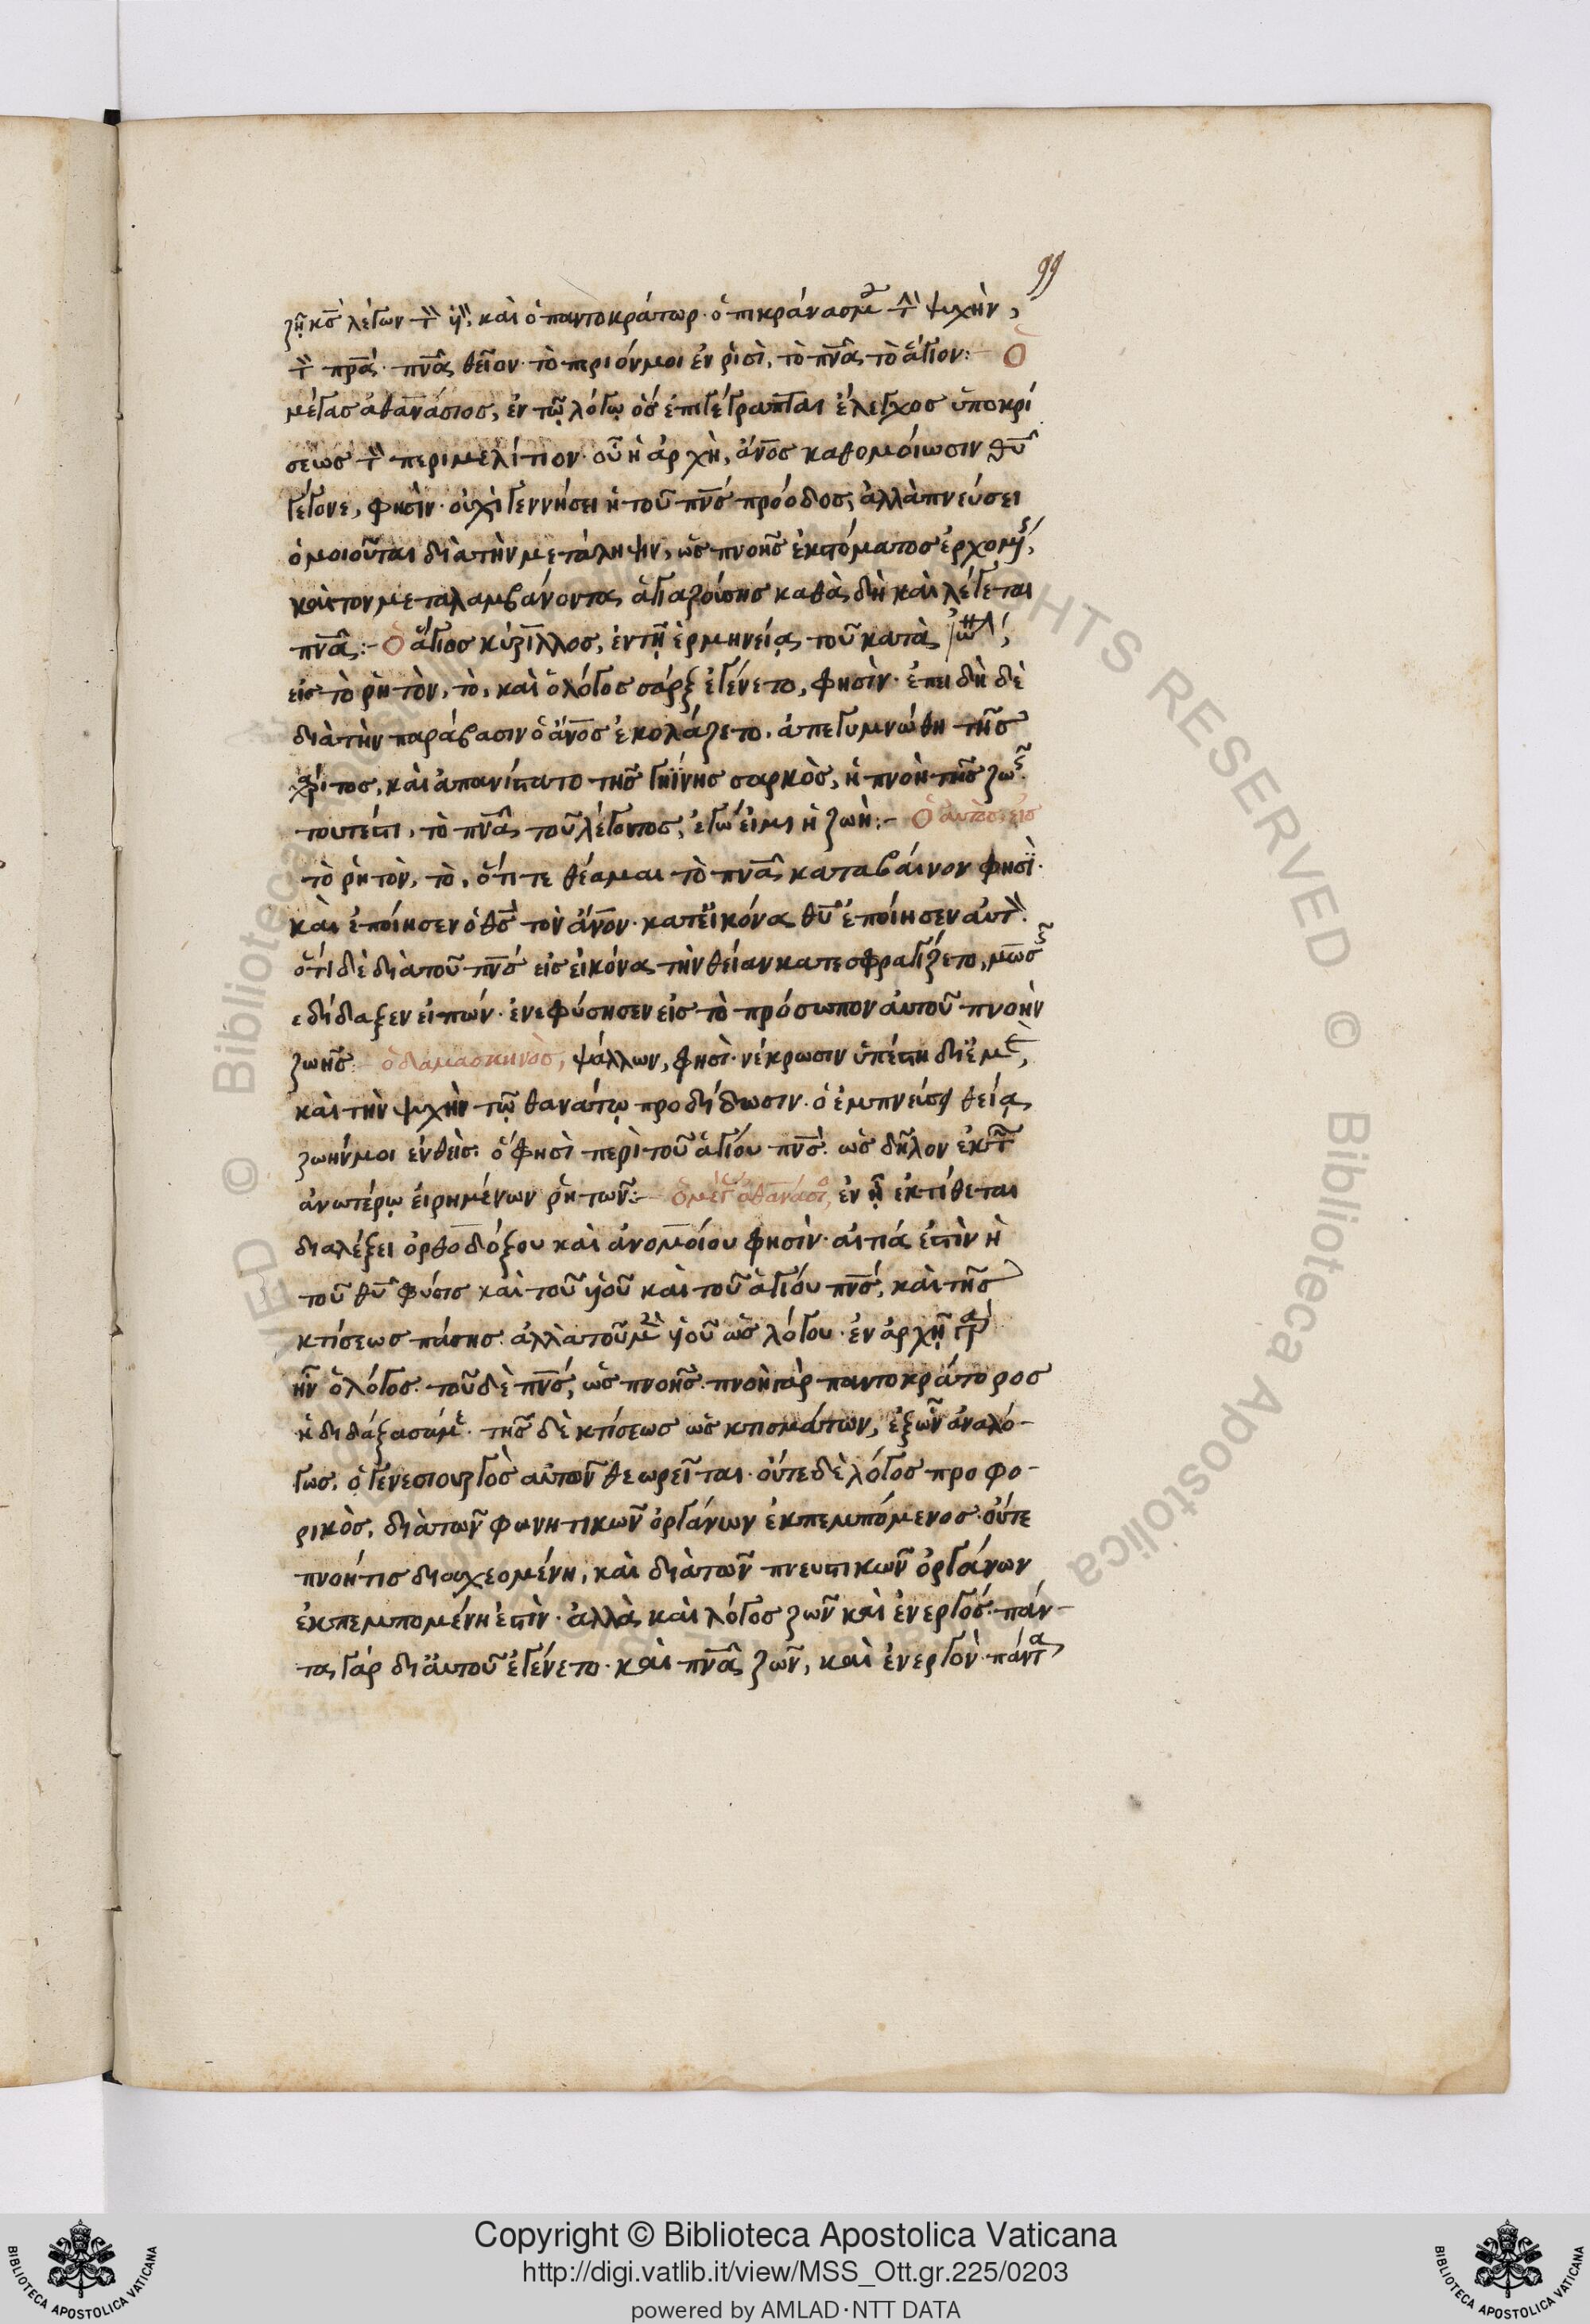 99
ζῆ κ̅ς̅ λέγων τὸν υ̅ν̅, καὶ ὁ παντοκράτωρ· ὁ πικράνας μου τὴν ψυχὴν,
τὸν π̅ρ̅α̅· π̅ν̅α̅ θεῖον τὸ περιόν μοι ἐν ῥισὶ, τὸ π̅ν̅α̅ τὸ ἅγιον:– Ὁ
μέγας ἀθανάσιος, ἐν τῷ λόγῳ ὃς ἐπιγέγραπται ἔλεγχος ὑποκρί
σεως τῶν περὶ μελίτιον· οὗ ἡ ἀρχὴ, ἄν̅ο̅ς̅ καθομοίωσιν θ̅υ̅
γέγονε, φησὶν· οὐχὶ γεννήσει ἡ τοῦ π̅ν̅ς̅ πρόοδος, ἀλλὰ πνεύσει
ὁμοιοῦται διὰ τὴν μετάληψιν, ὡς πνοῆς ἐκ στόματος ἐρχομένης,
καὶ τὸν μεταλαμβάνοντα ἁγιαζούσης καθὰ δὴ καὶ λέγεται
π̅ν̅α̅:– Ὁ ἅγιος κύριλλος, ἐν τῇ ἑρμηνείᾳ τοῦ κατὰ ἰω
εἰς τὸ ῥητὸν, τὸ, καὶ ὁ λόγος σὰρξ ἐγένετο, φησὶν· ἐπειδὴ δὲ
διὰ τὴν παράβασιν ὁ ἄν̅ο̅ς̅ ἐκολάζετο, ἀπεγυμνώθη τῆς
χάριτος, καὶ ἀπανίστατο τῆς γηΐνης σαρκὸς, ἡ πνοὴ τῆς ζωῆς·
τουτέστι, τὸ π̅ν̅α̅ τοῦ λέγοντος, ἐγώ εἰμι ἡ ζωή:– Ὁ αὐτὸς εἰς
τὸ ῥητὸν, τὸ, ὅτι τεθέαμαι τὸ π̅ν̅α̅ καταβαίνον φησί·
καὶ ἐποίησεν ὁ θ̅ς̅ τὸν ἄν̅ο̅ν̅· κατ' εἰκόνα θ̅υ̅ ἐποίησεν αὐτόν·
ὅτι δὲ διὰ τοῦ π̅ν̅ς̅ εἰς εἰκόνα τὴν θείαν κατεσφραγίζετο, μωσῆς
ἐδίδαξεν εἰπών· ἐνεφύσησεν εἰς τὸ πρόσωπον αὐτοῦ πνοὴν
ζωῆς:– ὁ δαμασκηνὸς, ψάλλων, φησὶ· νέκρωσιν ὑπέστη δι' ἐμὲ,
καὶ τὴν ψυχὴν τῷ θανάτῳ προδίδωσιν· ὁ ἐμπνεύσει θείᾳ
ζωήν μοι ἐνθείς· ὅ φησὶ περὶ τοῦ ἁγίου π̅ν̅ς̅· ὡς δῆλον ἐκ τῶν
ἀνωτέρω εἰρημένων ῥητῶν:– ὁ μέγας ἀθανάσιος, ἐν ᾗ ἐκτίθεται
διαλέξει ὀρθοδόξου καὶ ἀνομοίου φησὶν· αἰτιά ἐστὶν ἡ
τοῦ θ̅υ̅ φύσις καὶ τοῦ υ̅οῦ καὶ τοῦ ἁγίου π̅ν̅ς̅, καὶ τῆς
κτίσεως πάσης· ἀλλὰ τοῦ μὲν υ̅οῦ ὡς λόγου· ἐν ἀρχῇ γὰρ
ἦν ὁ λόγος· τοῦ δὲ π̅ν̅ς̅, ὡς πνοῆς· πνοὴ γὰρ παντοκράτορος
ἡ διδάξασά με· τῆς δὲ κτίσεως ὡς κτισμάτων, ἐξ ὧν ἀναλό–
γως, ὁ γενεσιουργὸς αὐτῶν θεωρεῖται· οὔτε δὲ λόγος προφο–
ρικὸς, διὰ τῶν φωνητικῶν ὀργάνων ἐκπεμπόμενος· οὔτε
πνοή τις διαχεομένη, καὶ διὰ τῶν πνευστικῶν ὀργάνων
ἐκπεμπομένη ἐστὶν· ἀλλὰ καὶ λόγος ζῶν καὶ ἐνεργός· πάν–
τα γὰρ δι' αὐτοῦ ἐγένετο· καὶ π̅ν̅α̅ ζῶν, καὶ ἐνεργὸν· πάντα
Copyright © Biblioteca Apostolica Vaticana
http://digi.vatlib.it/view/MSS_Ott.gr.225/0203
powered by AMLAD·NTT DATA